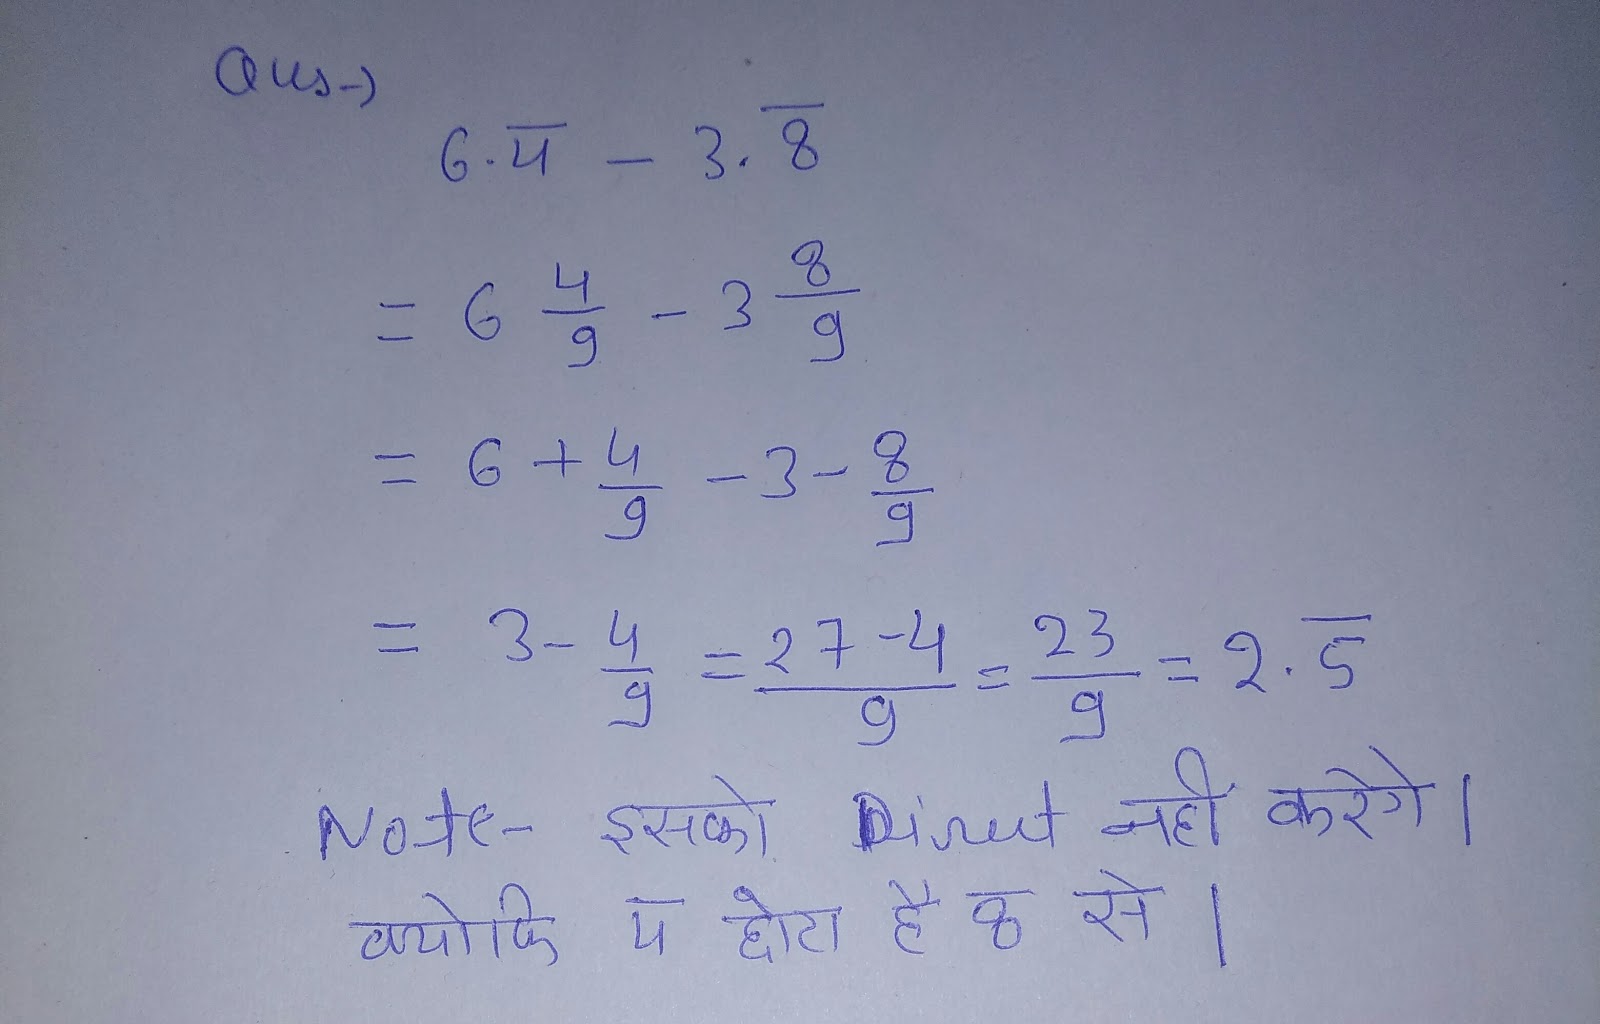 Ques→
6.4̅ – 3.8̅
= 6 4/9 - 3 8/9
= 6 + 4/9 - 3 - 8/9
= 3 - 4/9 = 27-4/9 = 23/9 = 2.5̅
Note- इसको Direct नहीं करेगे।
क्योकि 4̅ छोटा है 8̅ से।